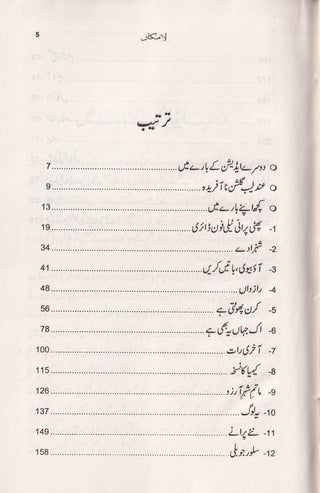 لامکاں 5
ترتیب
○ دوسرے ایڈیشن کے بارے میں 7
○ عندلیبِ گلشنِ ناآفریدہ 9
○ کچھ اپنے بارے میں 13
1- پھٹی پرانی ٹیلی فون ڈائری 19
2- شہزادے 34
3- آؤ بیوی، باتیں کریں 41
4- رازداں 48
5- کرن پھوٹتی ہے 56
6- اک جہاں یہ بھی ہے 78
7- آخری رات 100
8- کیمیا کا نسخہ 115
9- ماتمِ شہرِ آرزو 126
10- یہ لوگ 137
11- نئے پرانے 149
12- سلور جوبلی 158